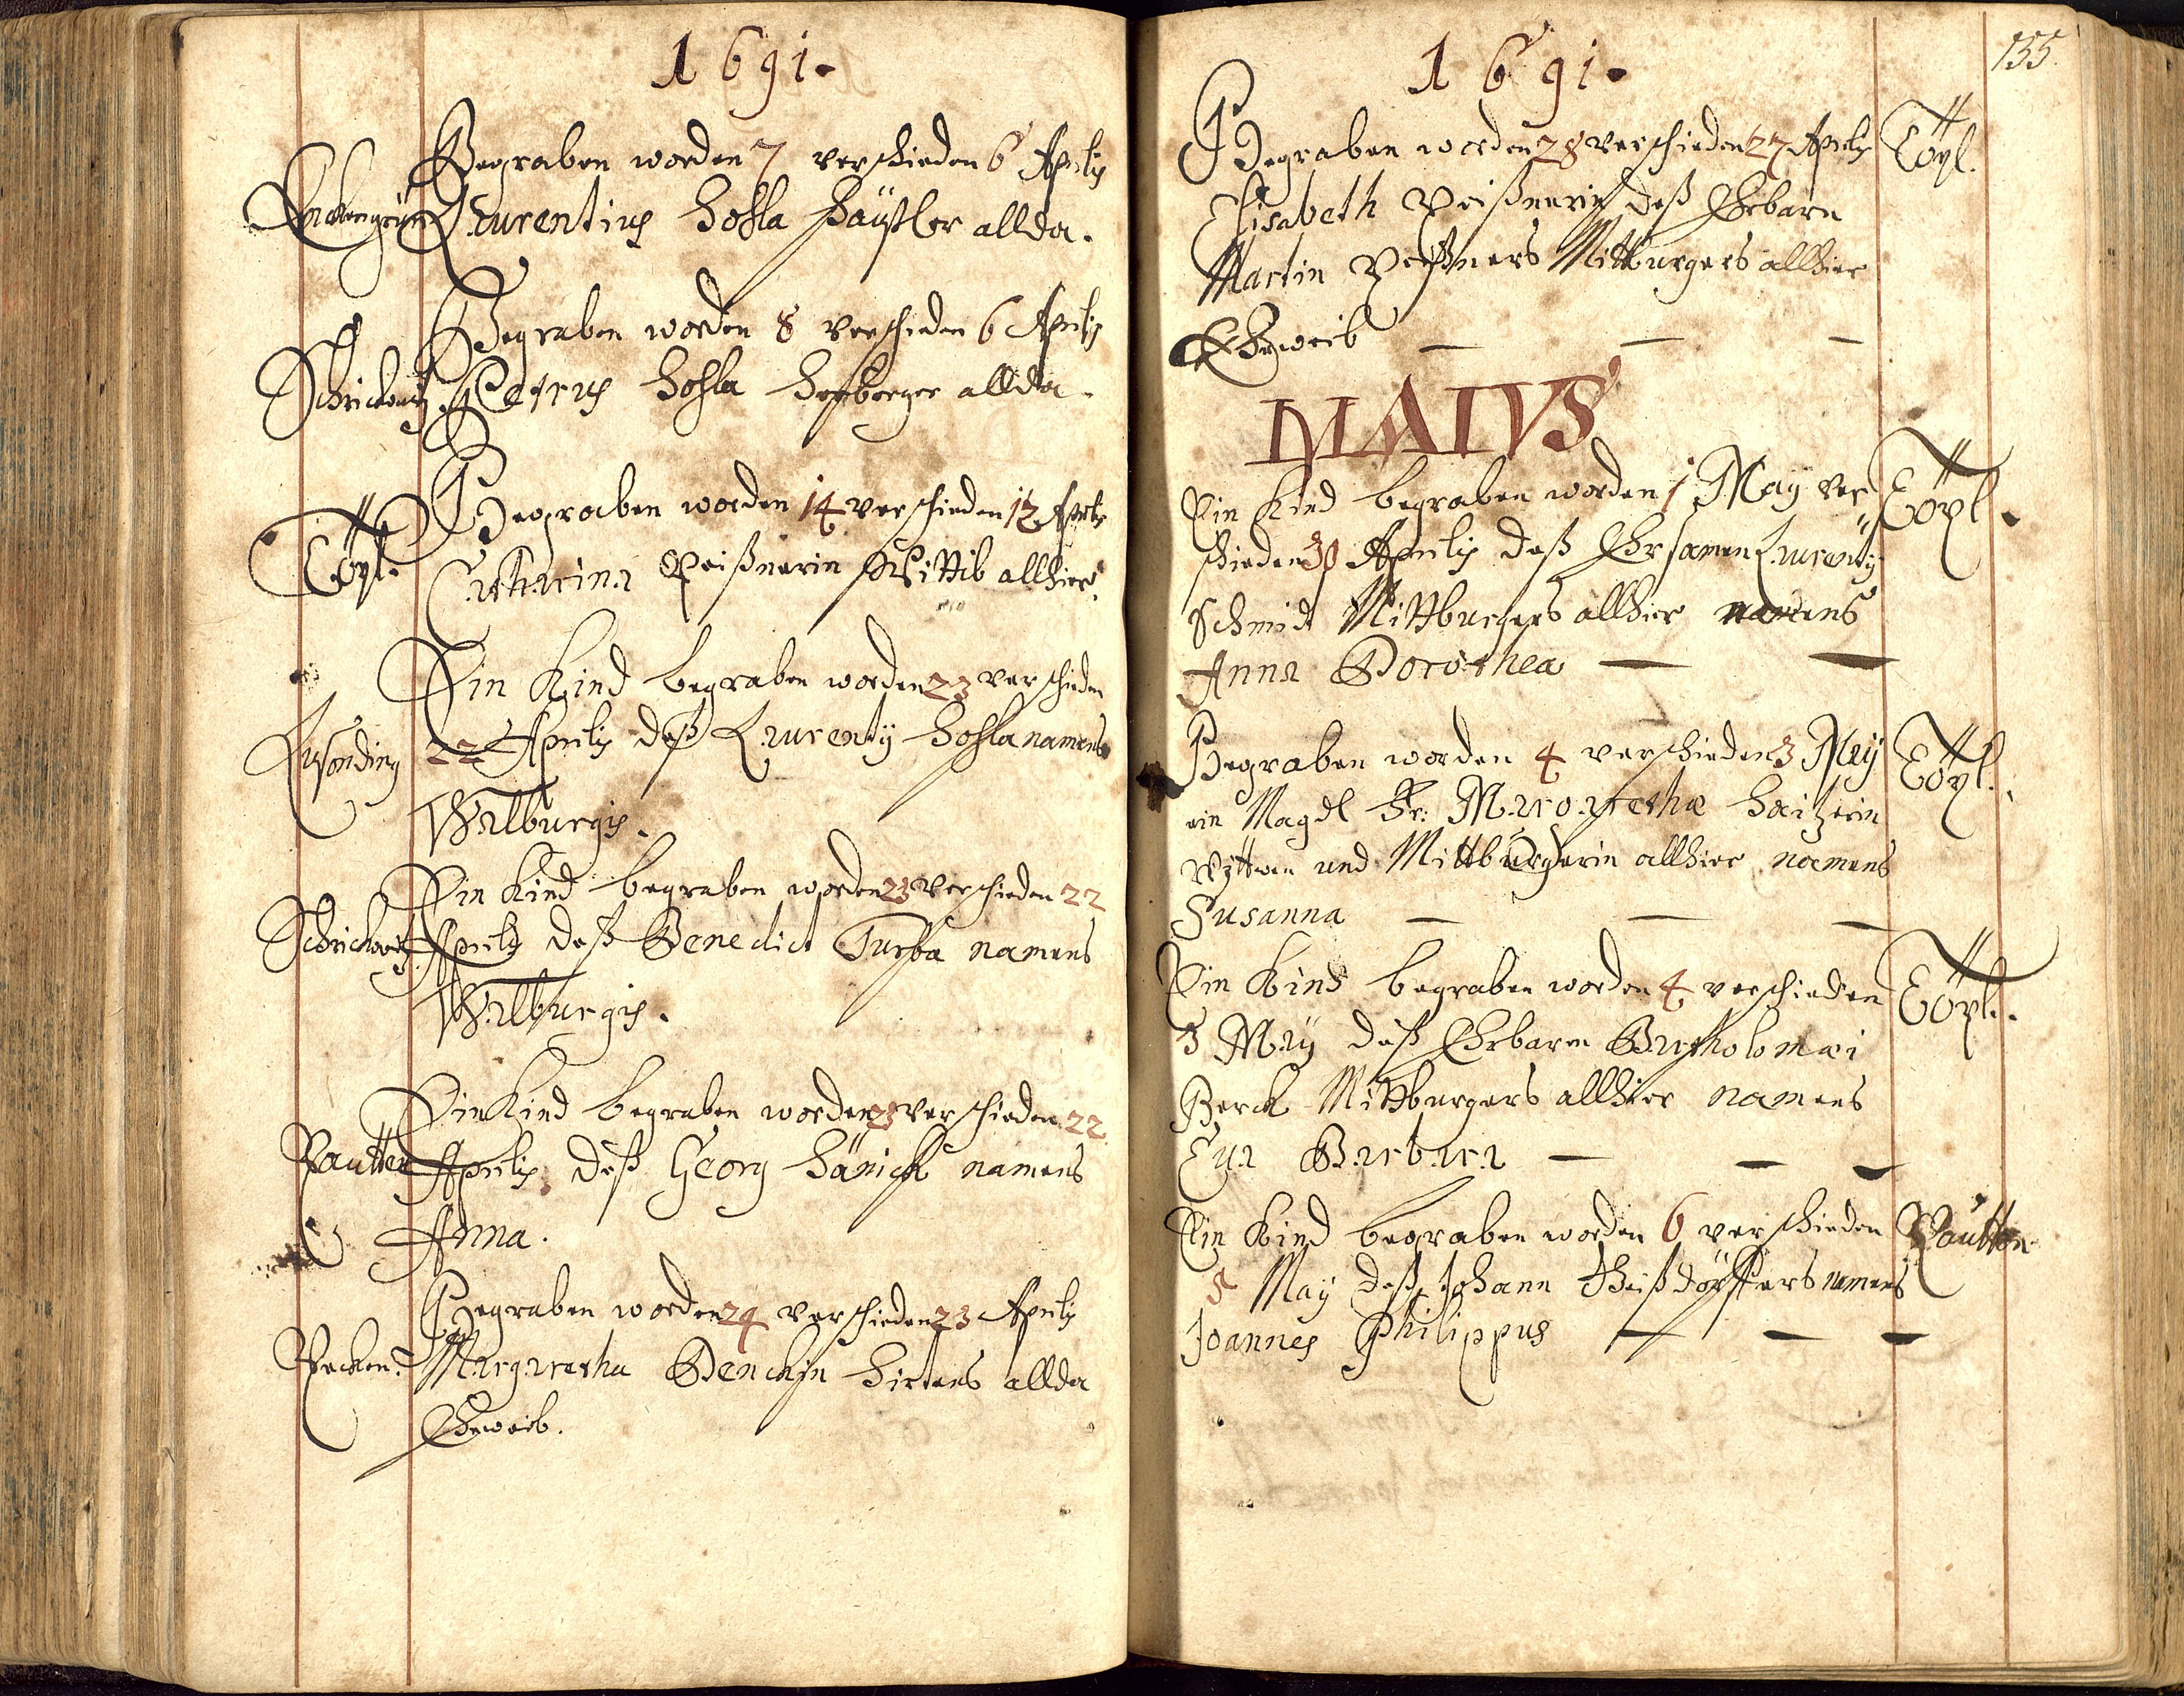 1691.
Begraben worden 7 verschieden 6 Aprilis
Laurentius Hosla Häußler allda.
Begraben worden 8 verschieden 6 Aprilis
Schrickowitz Petrus Hosla Herberger allda.
Töpl. Begraben worden 14 verschieden 12 Aprilis
Catharina Peißnerin Wittib allhier.
Ein Kind begraben worden 23 verschieden
Lusading 22 Aprilis deß Laurentÿ Hosla namens
Walburgis.
Ein Kind begraben worden 23 verschieden 22
Schrickowitz Aprilis deß Benedict Turba namens
Walburgis.
Ein Kind begraben worden 23 verschieden 22
Pautten Aprilis deß Georg Hänickl namens
Anna.
Begraben worden 24 verschieden 23 Aprilis
Margaretha Denckin Hirtens allda
Eheweib.
1691.
155.
Begraben worden 28 verschieden 27 Aprilis Töpl.
Elisabeth Peißnerin deß Ehrbarn
Martin Peißners Mittburgers allhier
Eheweib
MAIVS
Ein Kind begraben worden 1 May ver Töpl.
schieden 30 Aprilis deß Ehrsamen Laurentÿ
Schmidt Mittburgers allhier namens
Anna Dorothea
Begraben worden 4 verschieden 3 Maÿ Töpl.
ein Magdl Fr: Margaretha
Wittwen und Mittburgerin allhier namens
Susanna
Ein Kind begraben worden 4 verschieden Töpl.
3 Maÿ deß Ehrbarn Bartholomæi
Berck Mittburgers allhier namens
Eua Barbara
Ein Kind begraben worden 6 verschieden Pautten
5 May deß Johann namens
Joannes Philippus